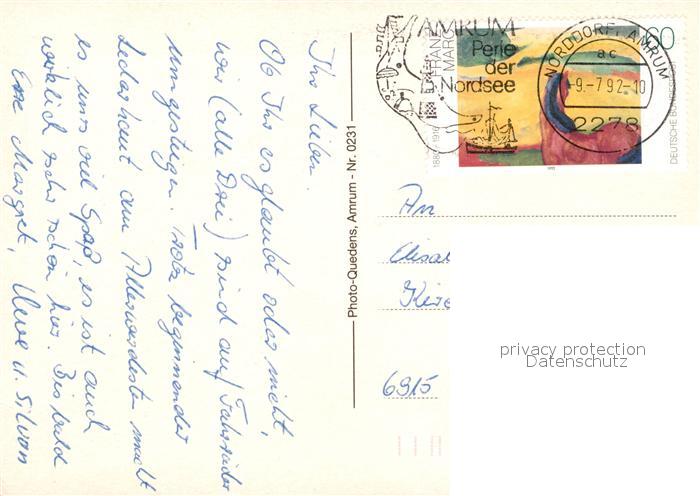 Ihr Lieben.
Ob Ihr es glaubt oder nicht,
wir (alle Drei) sind auf Fahrräder
umgestiegen. Trotz beginnender
Lederhaut am Allerwerdesten macht
es uns viel Spaß, es ist auch
wirklich sehr schön hier. Bis bald
Eure Margret, Uwe u. Silvan
Photo-Quedens, Amrum - Nr. 0231
AMRUM
Perle
der
Nordsee
FRANZ
MARC
60
DEUTSCHE BUNDESPOST
1992
NORDDORF, AMRUM
ac
-9.-7.92-10
2278
An
Elisa
6915
privacy protection
Datenschutz